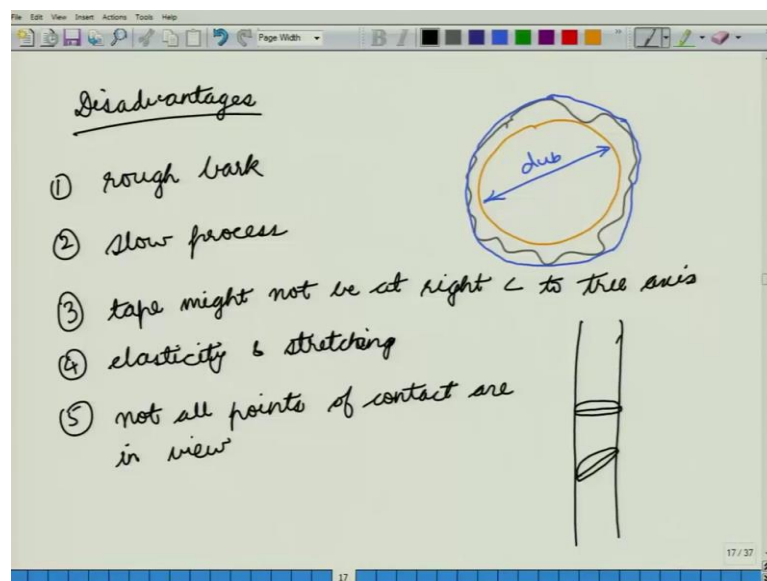 File Edit View Insert Actions Tools Help
Page Width
B I
Disadvantages
dub
① rough bark
② slow process
③ tape might not be at right ∠ to tree axis
④ elasticity & stretching
⑤ not all points of contact are
in view
17 / 37
17